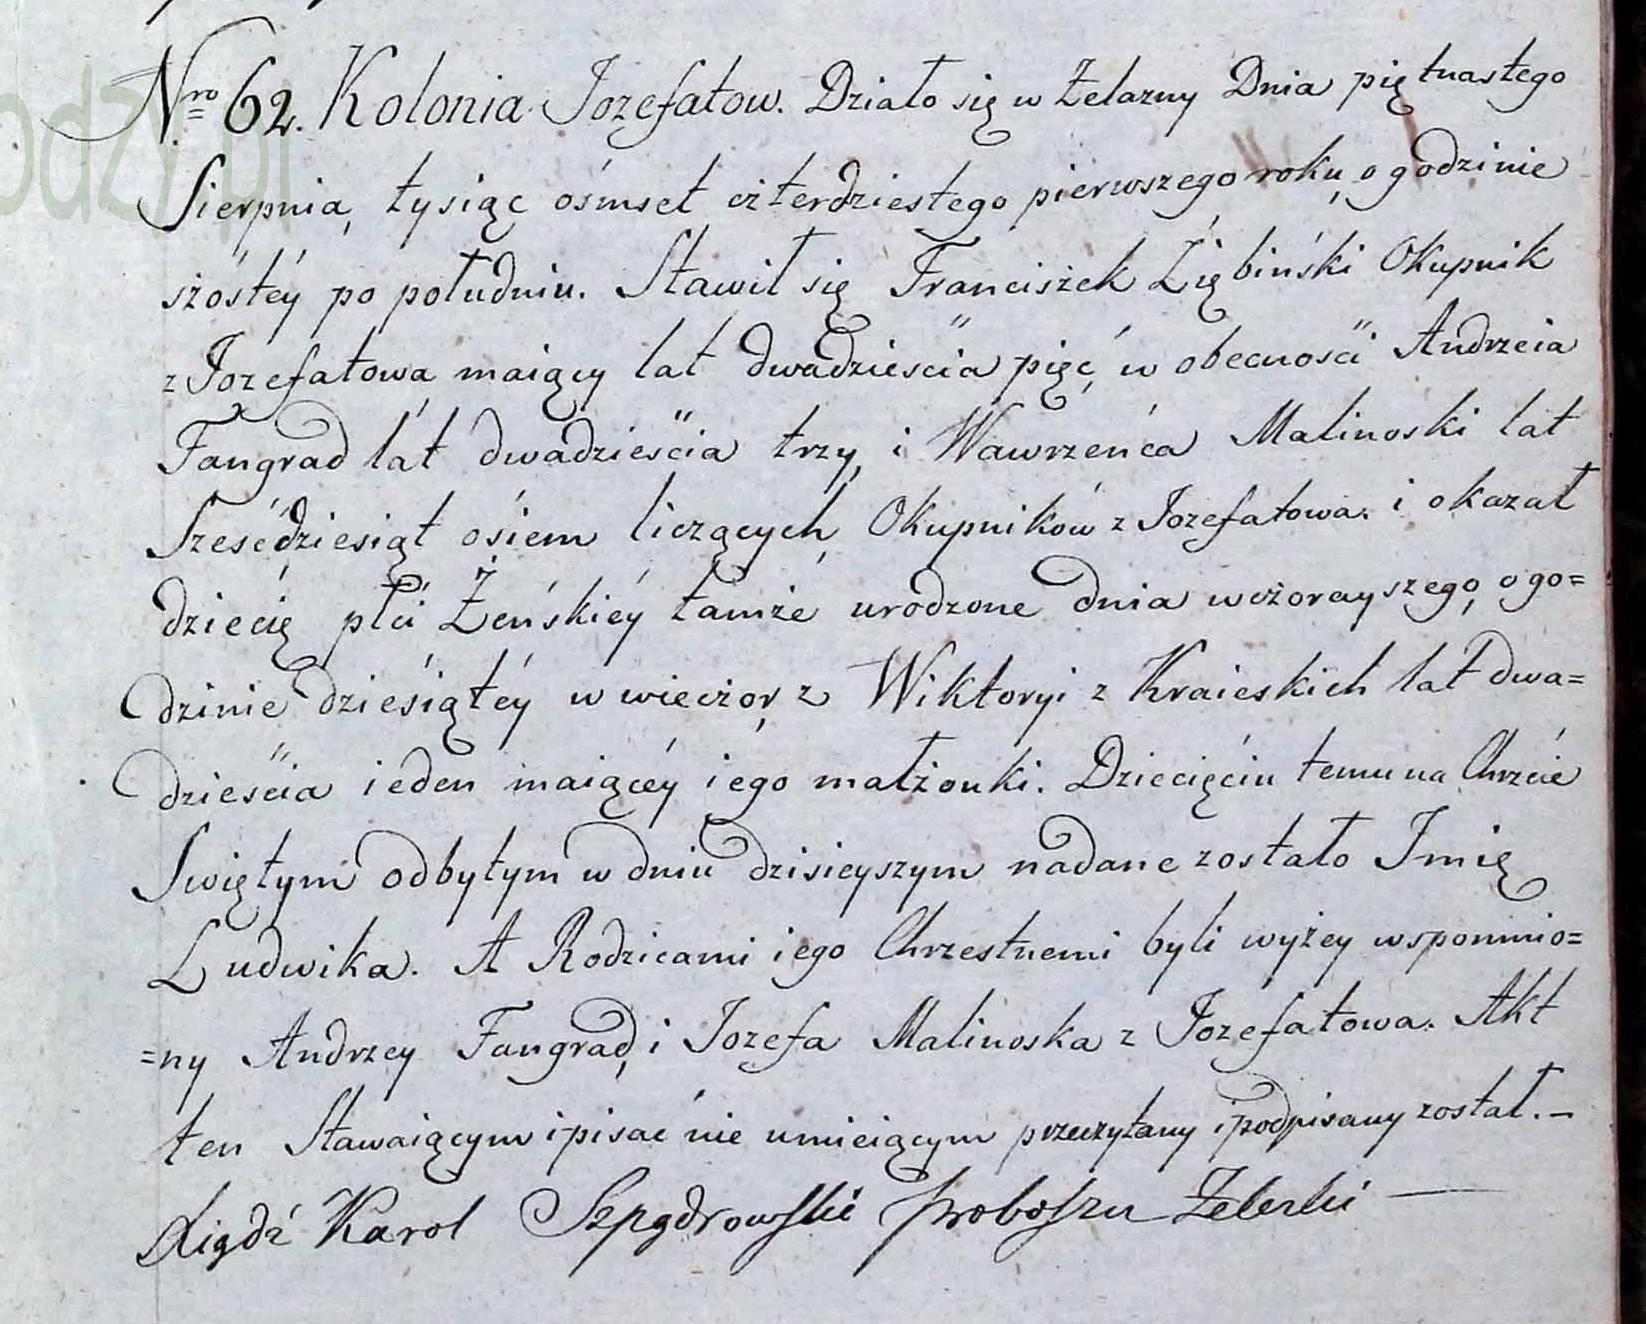 Nro 62. Kolonia Jozefatow. Działo się w Żelazny Dnia piętnastego
Sierpnia, tysiąc ośmset czterdziestego pierwszego roku, o godzinie
szóstéy po południu. Stawił się Franciszek Ziębiński Okupnik
z Jozefatowa, maiący lat dwadzieścia pięć, w obecności Andrzeia
Fangrad lat dwadzieścia trzy, i Wawrzeńca Malinoski lat
Sześćdziesiąt ośiem liczących, Okupników z Jozefatowa. i okazał
dziecię płci Żeńskiéy tamże urodzone dnia wczorayszego, o go=
dzinie dziesiątéy w wieczor, z Wiktoryi z Kraieskich lat dwa=
dzieścia ieden maiącéy iego małżonki. Dziecięciu temu na Chrzcie
Swiętym odbytym w dniu dzisieyszym nadane zostało Imię
Ludwika. A Rodzicami iego Chrzestnemi byli wyżey wspomnio=
=ny Andrzey Fangrad, i Jozefa Malinoska z Jozefatowa. Akt
ten Stawaiącym i pisać nie umieiącym przeczytany i podpisany został.—
Xiądź Karol Proboszcz
odzy.pl